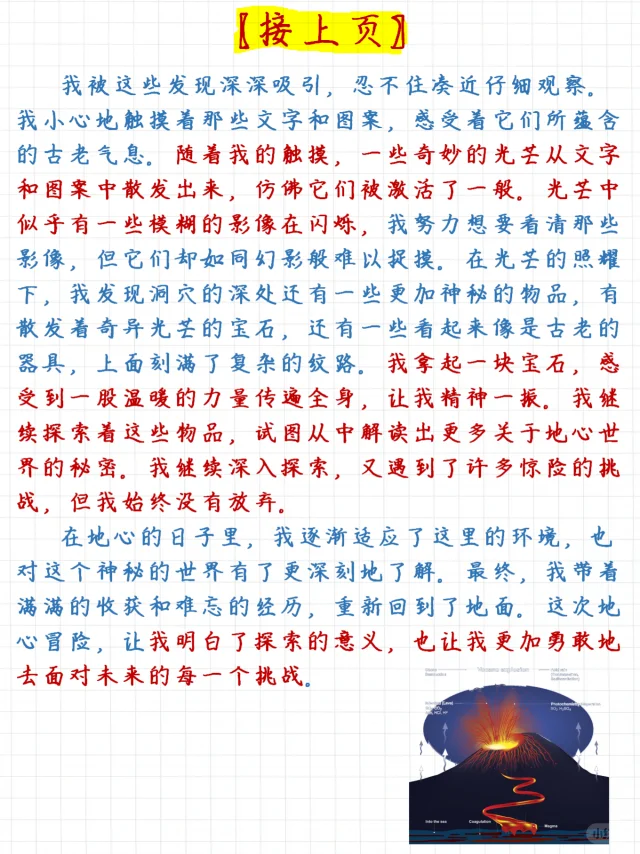 【接上页】
我被这些发现深深吸引，忍不住凑近仔细观察。
我小心地触摸着那些文字和图案，感受着它们所蕴含
的古老气息。随着我的触摸，一些奇妙的光芒从文字
和图案中散发出来，仿佛它们被激活了一般。光芒中
似乎有一些模糊的影像在闪烁，我努力想要看清那些
影像，但它们却如同幻影般难以捉摸。在光芒的照耀
下，我发现洞穴的深处还有一些更加神秘的物品，有
散发着奇异光芒的宝石，还有一些看起来像是古老的
器具，上面刻满了复杂的纹路。我拿起一块宝石，感
受到一股温暖的力量传遍全身，让我精神一振。我继
续探索着这些物品，试图从中解读出更多关于地心世
界的秘密。我继续深入探索，又遇到了许多惊险的挑
战，但我始终没有放弃。
在地心的日子里，我逐渐适应了这里的环境，也
对这个神秘的世界有了更深刻地了解。最终，我带着
满满的收获和难忘的经历，重新回到了地面。这次地
心冒险，让我明白了探索的意义，也让我更加勇敢地
去面对未来的每一个挑战。
Into the sea
Coagulation
Magma